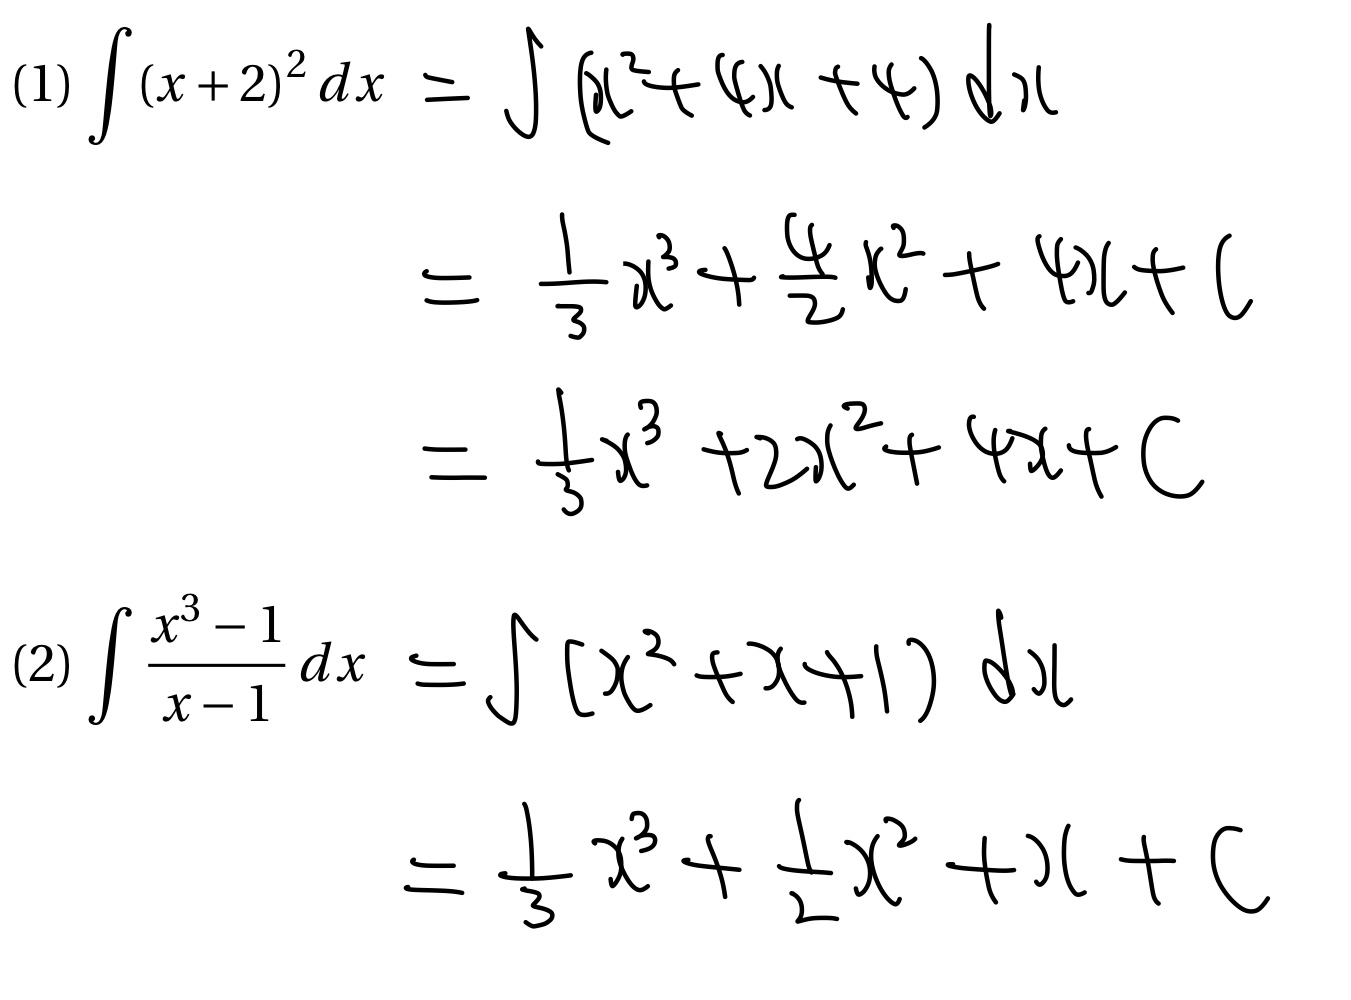 (1) ∫(x+2)² dx = ∫(x²+4x+4) dx
= 1/3 x³ + 4/2 x² + 4x + C
= 1/3 x³ + 2x² + 4x + C
(2) ∫ (x³−1)/(x−1) dx = ∫(x²+x+1) dx
= 1/3 x³ + 1/2 x² + x + C